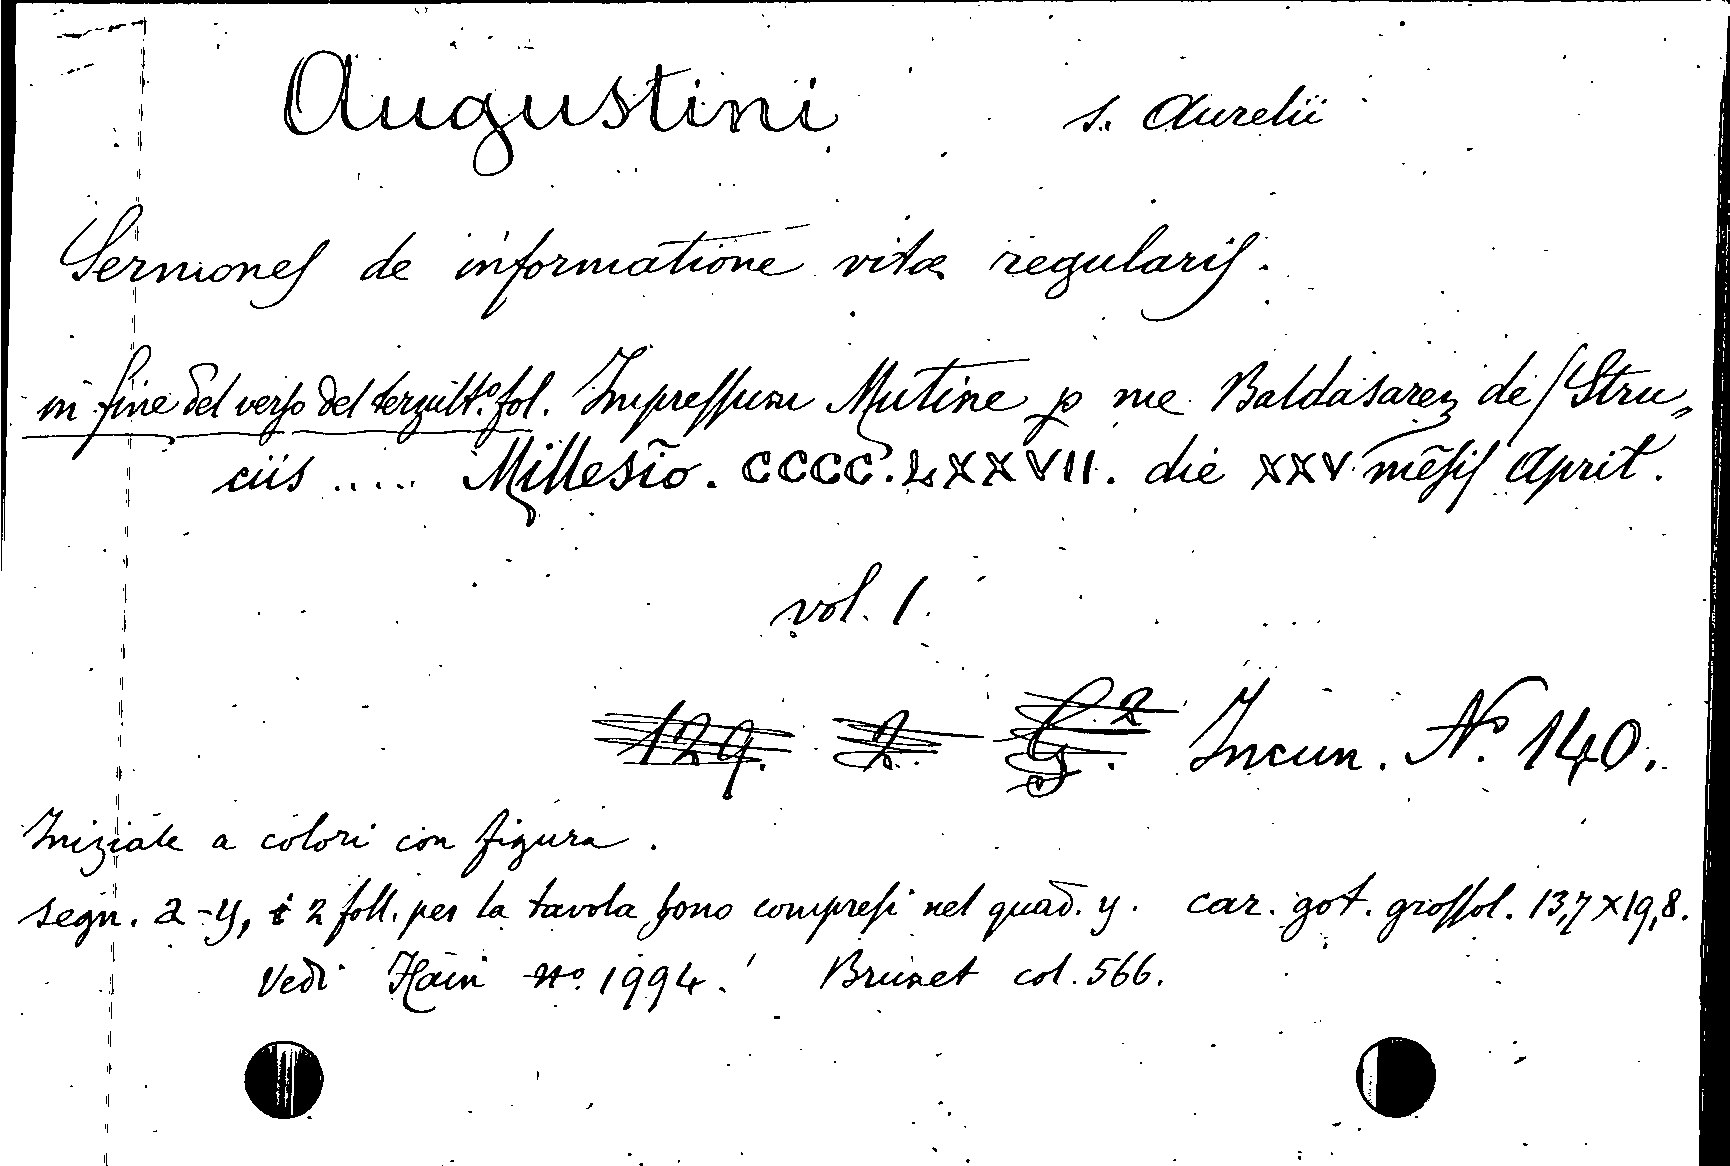 Augustini s. Aurelii
Sermones de informatione vitæ regularis.
in fine del verso del terzult.º fol. Impressum Mutine p me Baldasarez de Stru„
ciis ..... Millesiō. CCCC.LXXVII. die XXV mēsis April.
vol. 1.
129. 2. G.² Incun. Nº 140.
Iniziale a colori con figura.
segn. a-y, i 2 foll. per la tavola sono compresi nel quad. y. car. got. grossol. 13,7×19,8.
Vedi Hain nº. 1994. Brunet col. 566.